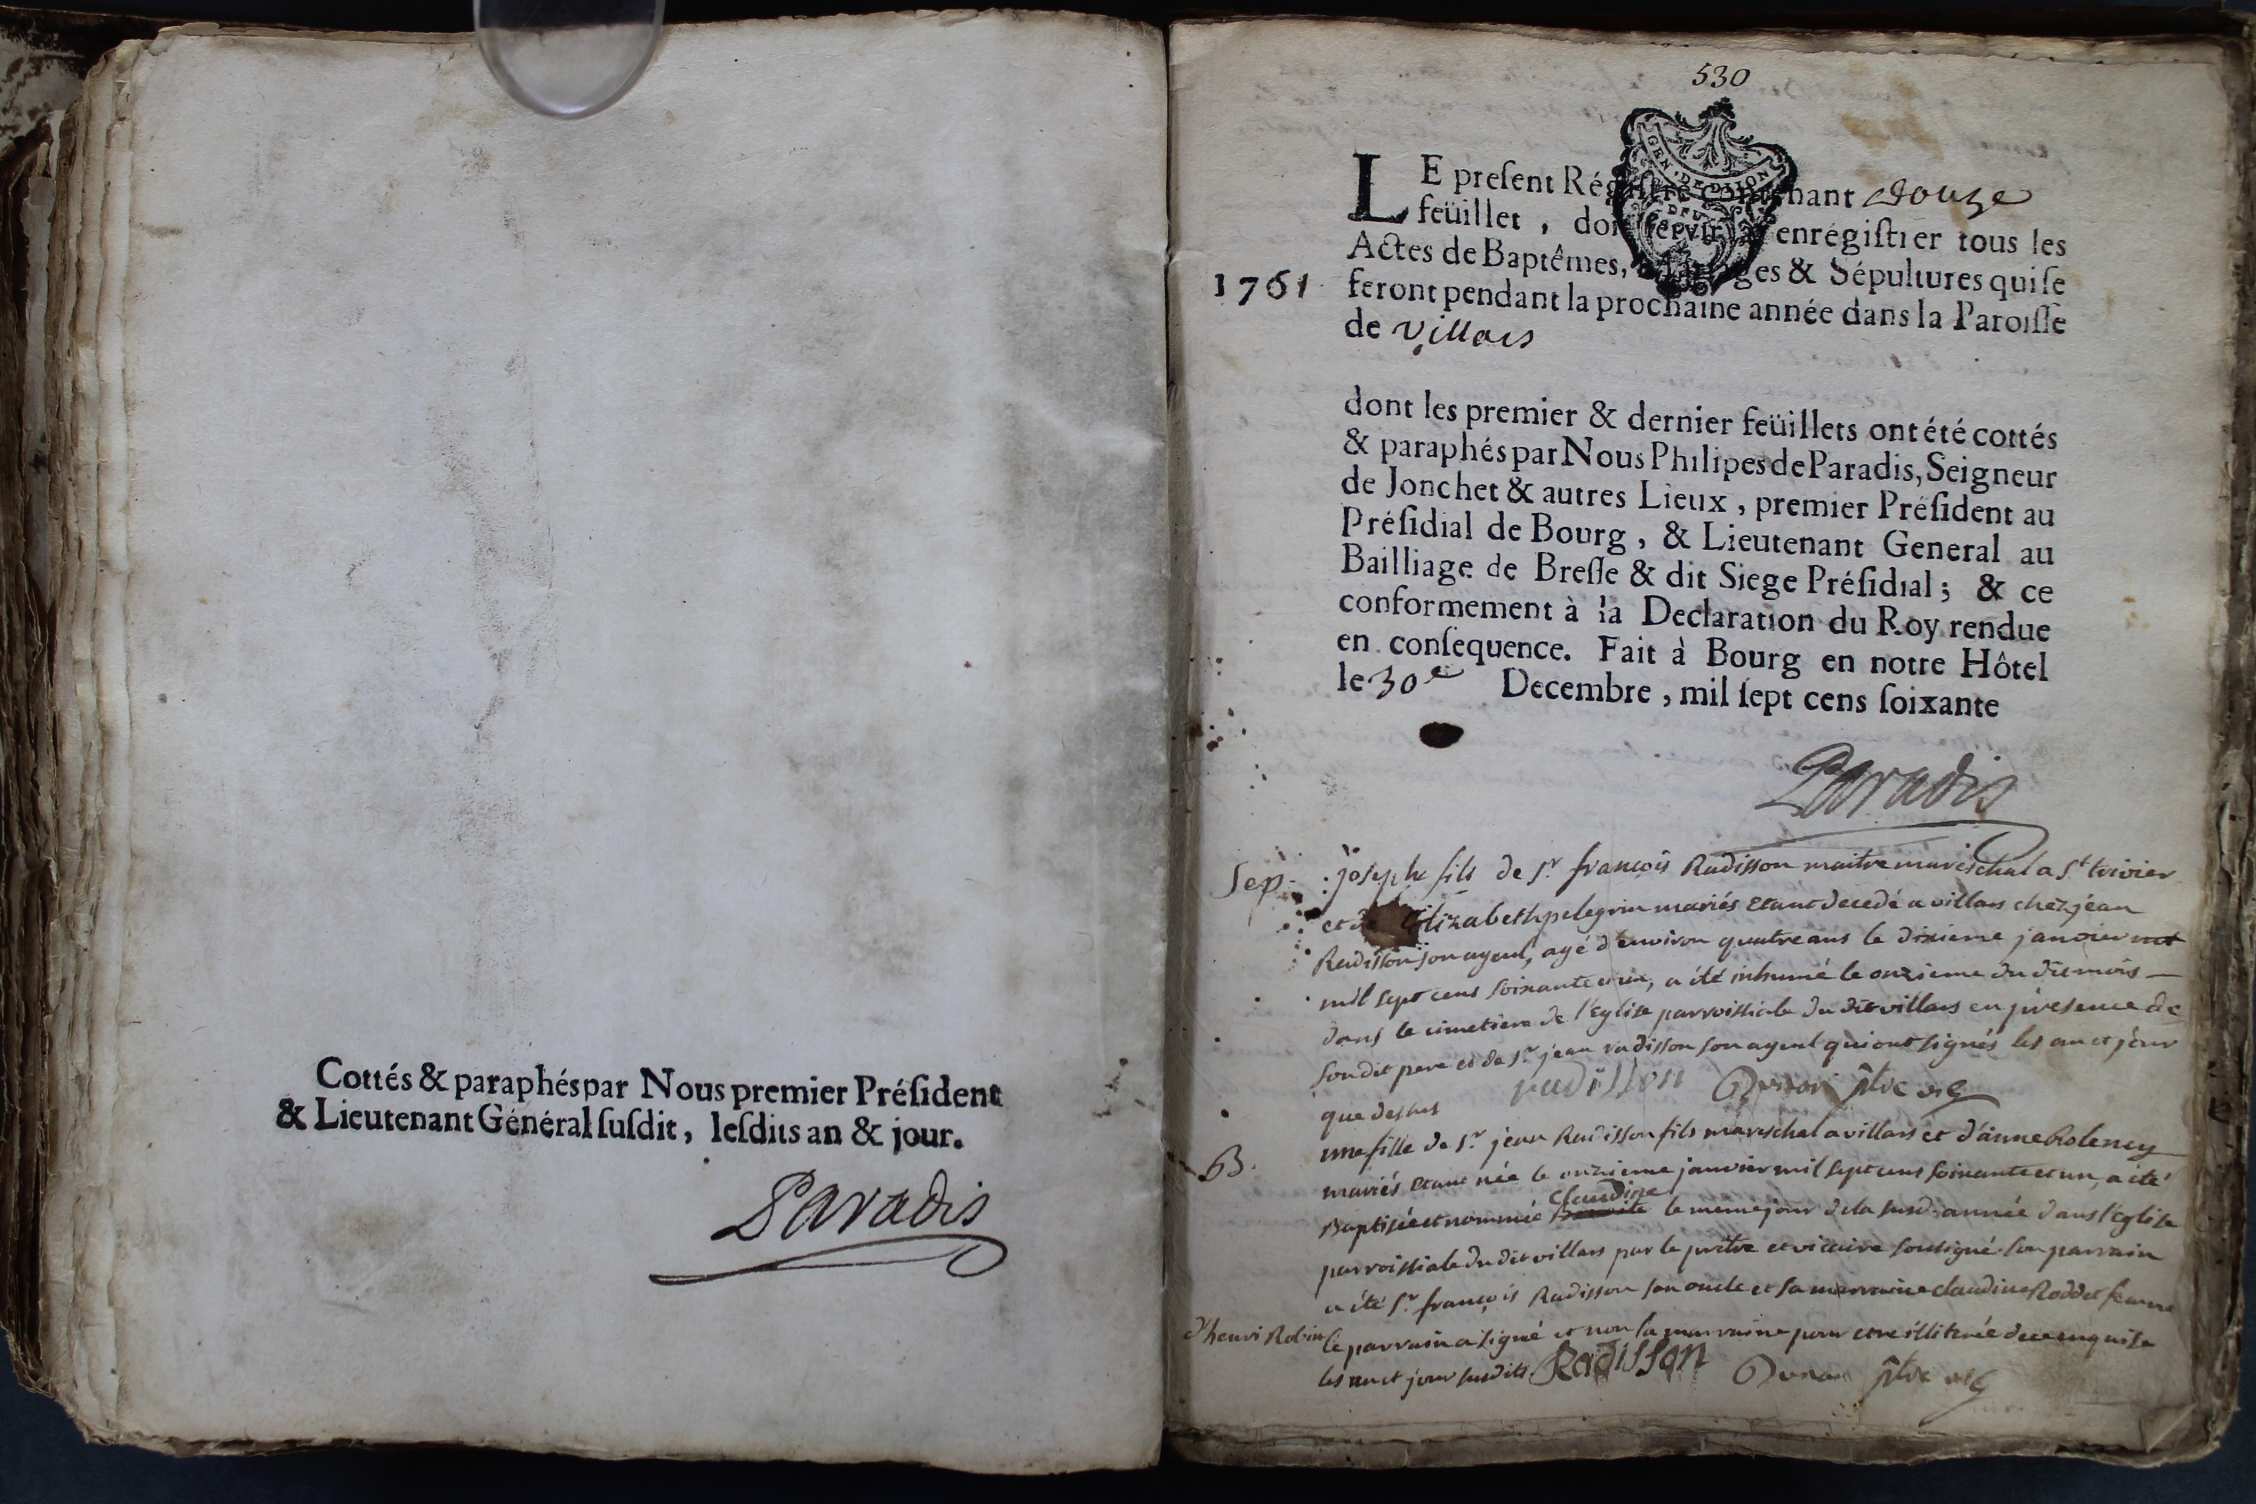 Cottés & paraphés par Nous premier Président
& Lieutenant Général susdit, lesdits an & jour.
Paradis
530
GEN. DE DIJON
LE present Régistre contenant douze
feüillet, doit servir à enrégistrer tous les
Actes de Baptêmes, Mariages & Sépultures qui se
1761 feront pendant la prochaine année dans la Paroisse
de villars
dont les premier & dernier feüillets ont été cottés
& paraphés par Nous Philipes de Paradis, Seigneur
de Jonchet & autres Lieux, premier Président au
Présidial de Bourg, & Lieutenant General au
Bailliage de Bresse & dit Siege Présidial; & ce
conformement à la Declaration du Roy rendue
en consequence. Fait à Bourg en notre Hôtel
le 30e Decembre, mil sept cens soixante
Paradis
Sep. joseph fils de Sr. francois Radisson maitre mareschal a St trivier
et de Elizabeth pelegrin mariés etant decedé a villars chez jean
Radisson son ayeul, agé d'environ quatre ans le dixieme janvier
mil sept cens soixante et un, a été inhumé le onzieme du dit mois
dans le cimetiere de l'Eglise parroissiale du dit villars en presence de
son dit pere et de Sr. jean radisson son ayeul qui ont signés les an et jour
que dessus radisson ptre vic
B. une fille de Sr. jean Radisson fils mareschal a villars et d'anne
mariés etant née le onzieme janvier mil sept cens soixante et un, a été
Baptisée et nommée Claudine le meme jour de la susd. année dans l'Eglise
parroissiale du dit villars par le prêtre et vicaire soussigné. Son parrain
a été Sr. françois Radisson son oncle et sa marraine claudine Roddet femme
d'henri Robin le parrain a signé et non la marraine pour etre illiterée de ce enquise
les an et jour susdits. Radisson ptre vic